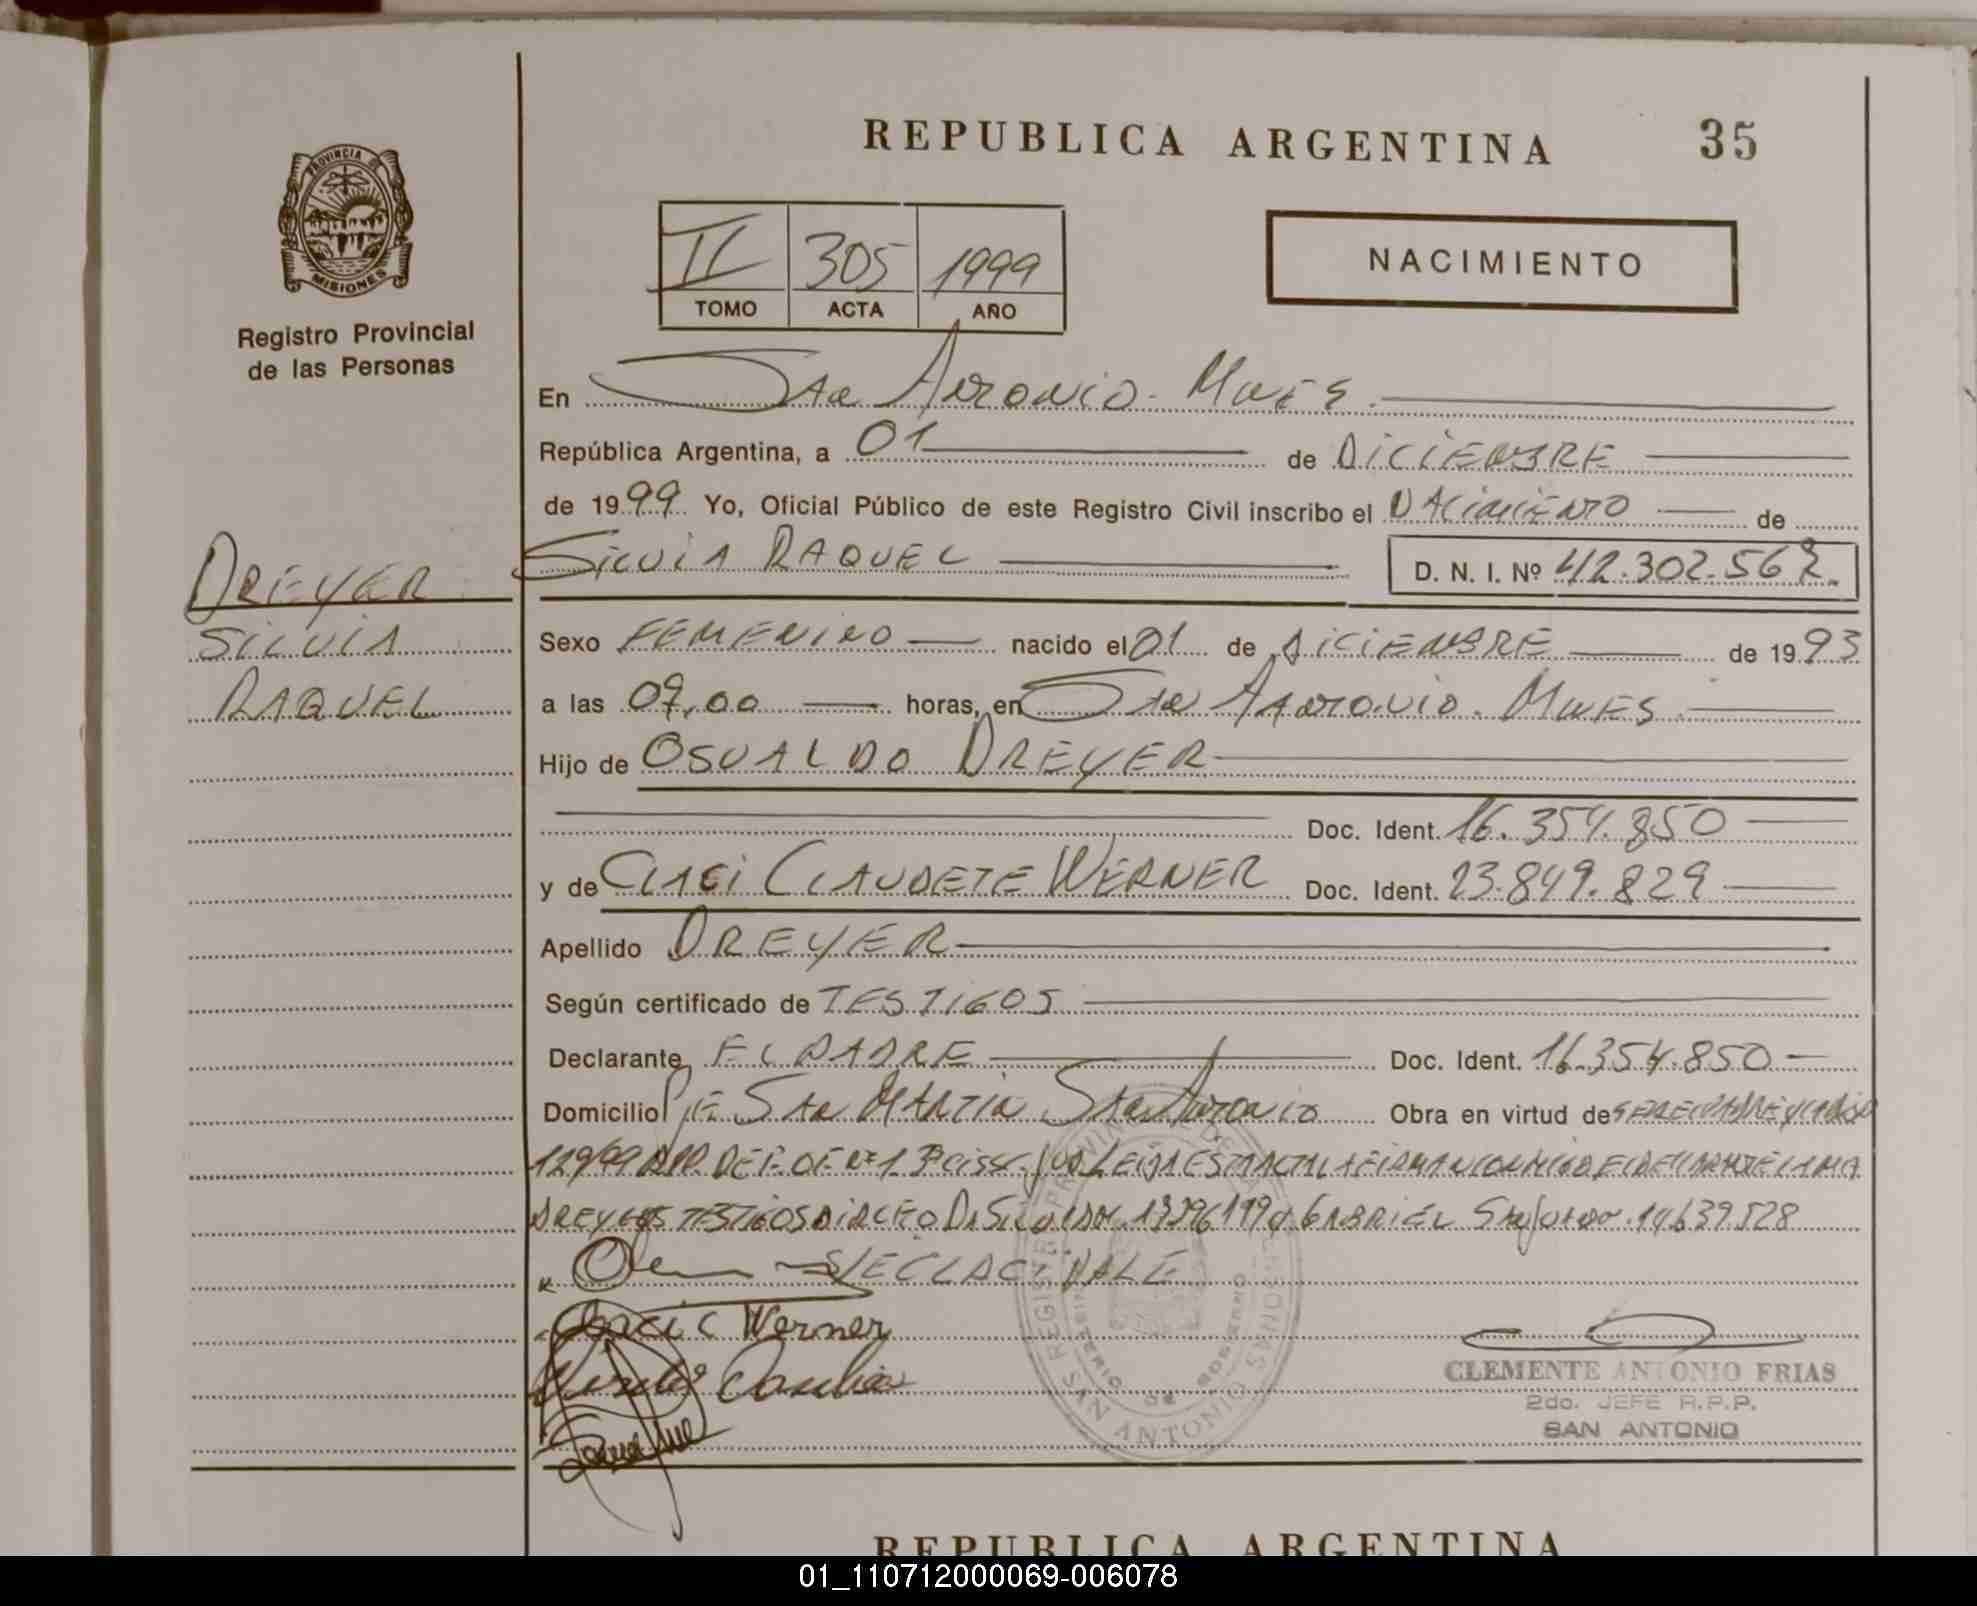 REPUBLICA ARGENTINA 35
PROVINCIA DE
MISIONES
Registro Provincial
de las Personas
II 305 1999
TOMO ACTA AÑO
NACIMIENTO
En San Antonio. Mnes.
República Argentina, a 01 de DICIEMBRE
de 1999 Yo, Oficial Público de este Registro Civil inscribo el NACIMIENTO de
DREYER
SILVIA
RAQUEL
SILVIA RAQUEL D. N. I. Nº 42.302.562
Sexo FEMENINO nacido el 01 de DICIEMBRE de 1993
a las 09,00 horas, en San Antonio. Mnes.
Hijo de OSVALDO DREYER
Doc. Ident. 16.354.850
y de CLACI CLAUDETE WERNER Doc. Ident. 23.849.829
Apellido DREYER
Según certificado de TESTIGOS
Declarante EL PADRE Doc. Ident. 16.354.850
Domicilio Pje San Martin San Antonio Obra en virtud de
129/99 DEF. OF. Nº 1
DREYER TESTIGOS DIRCEO Da Silva GABRIEL 14639528
CLACI VALE
C Werner
REGISTRO PROVINCIAL DE LAS PERSONAS
MINISTERIO DE GOBIERNO
SAN ANTONIO
CLEMENTE ANTONIO FRIAS
2do. JEFE R.P.P.
SAN ANTONIO
REPUBLICA ARGENTINA
01_110712000069-006078